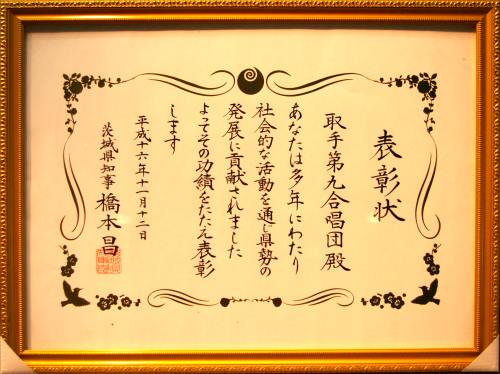 表彰状
取手第九合唱団殿
あなたは多年にわたり
社会的な活動を通し県勢の
発展に貢献されました
よってその功績をたたえ表彰
します
平成十六年十一月十二日
茨城県知事 橋本昌